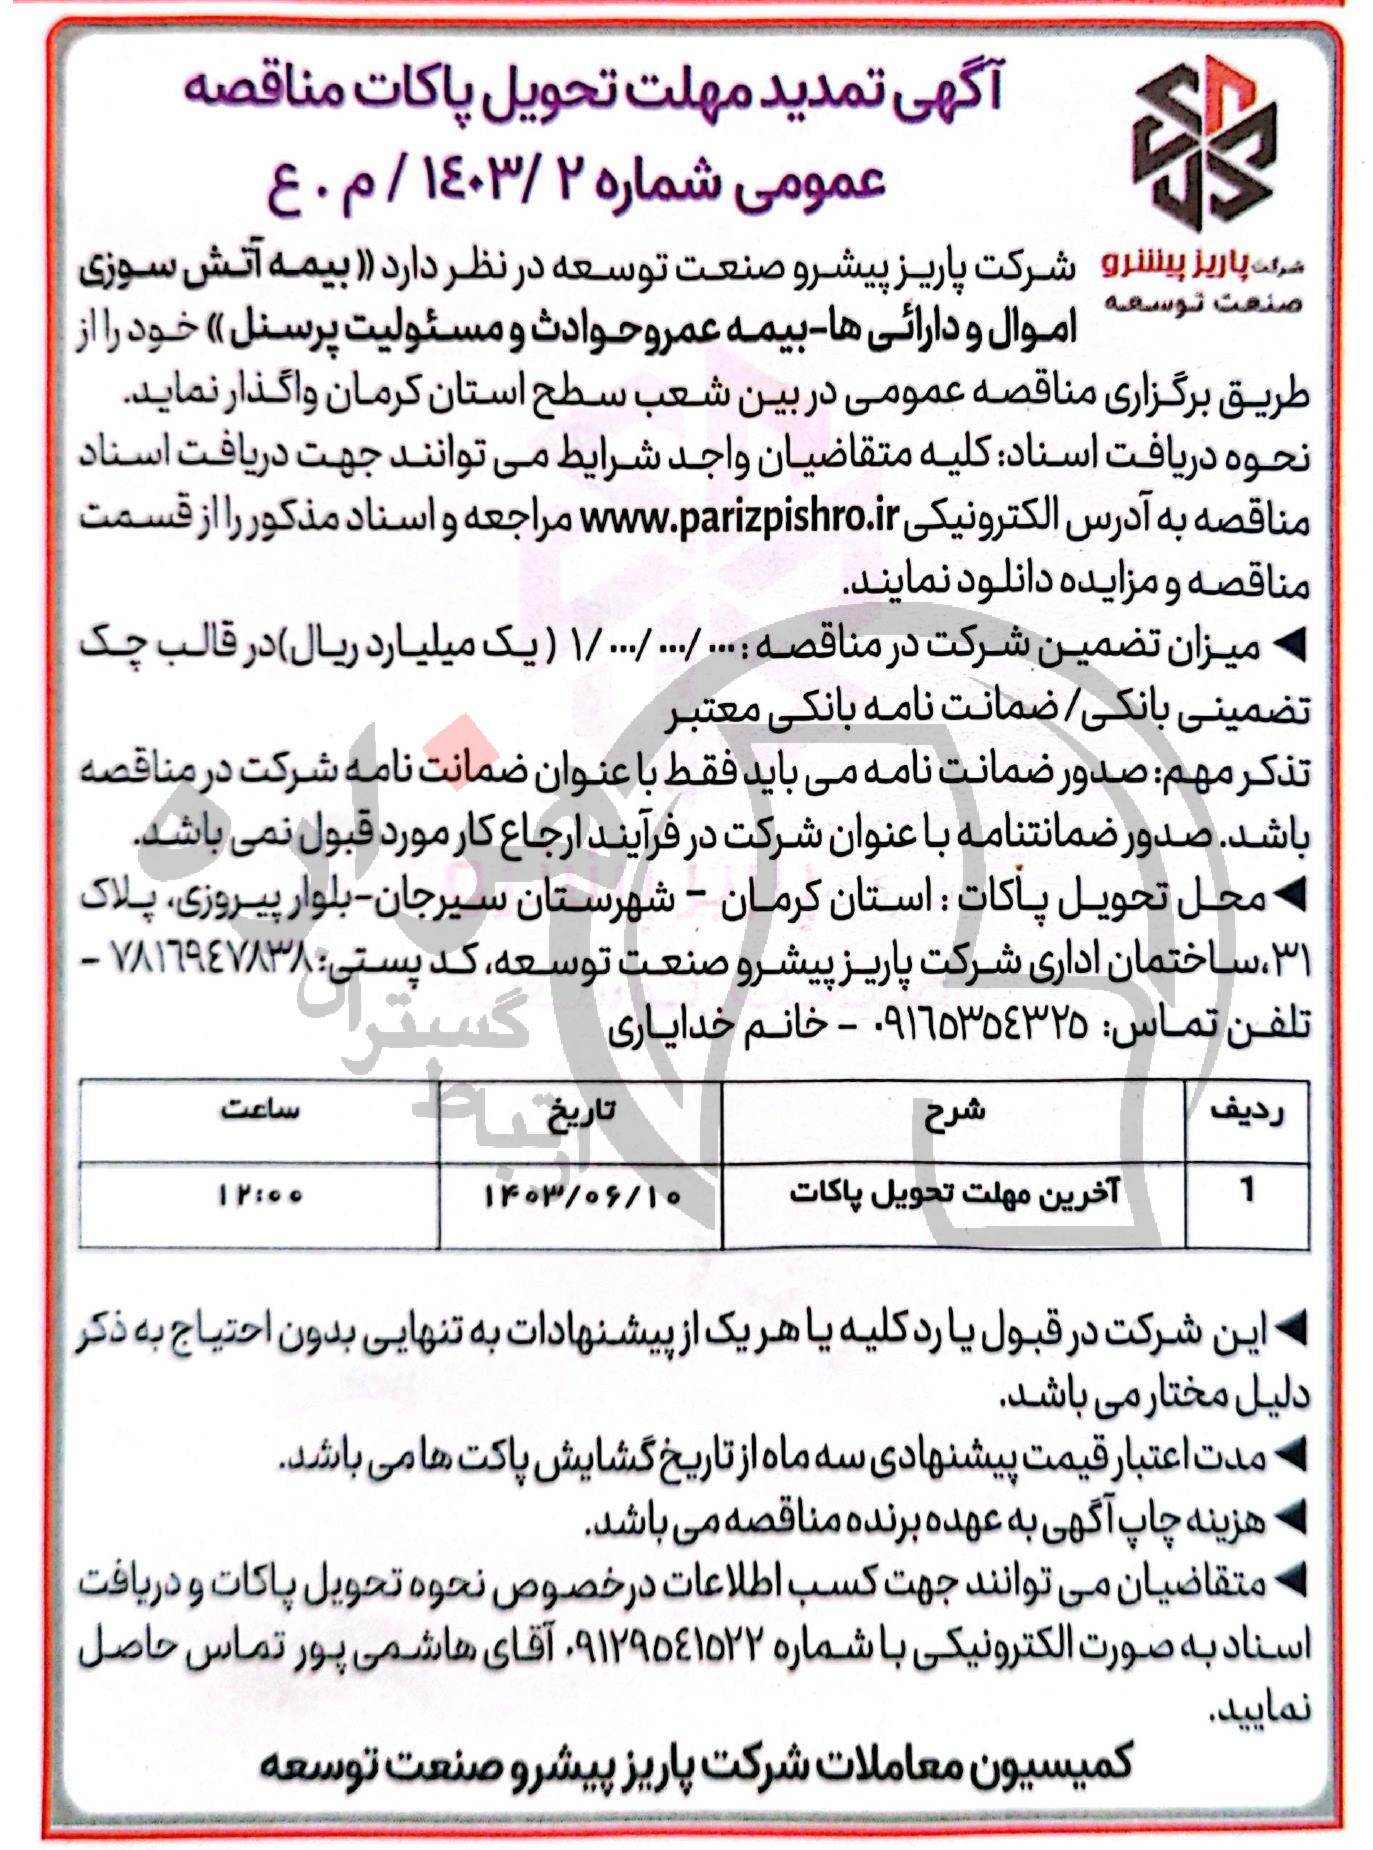 آگهی تمدید مهلت تحویل پاکات مناقصه
عمومی شماره ۲ /۱٤۰۳ / م . ع
شرکت پاریز پیشرو
صنعت توسعه
شرکت پاریز پیشرو صنعت توسعه در نظر دارد (( بیمه آتش سوزی
اموال و دارائی ها-بیمه عمر و حوادث و مسئولیت پرسنل)) خود را از
طریق برگزاری مناقصه عمومی در بین شعب سطح استان کرمان واگذار نماید.
نحوه دریافت اسناد: کلیه متقاضیان واجد شرایط می توانند جهت دریافت اسناد
مناقصه به آدرس الکترونیکی www.parizpishro.ir مراجعه و اسناد مذکور را از قسمت
مناقصه و مزایده دانلود نمایند.
◄ میزان تضمین شرکت در مناقصه : ۱/۰۰۰/۰۰۰/۰۰۰ ( یک میلیارد ریال)در قالب چک
تضمینی بانکی/ ضمانت نامه بانکی معتبر
تذکر مهم: صدور ضمانت نامه می باید فقط با عنوان ضمانت نامه شرکت در مناقصه
باشد. صدور ضمانتنامه با عنوان شرکت در فرآیند ارجاع کار مورد قبول نمی باشد.
◄ محل تحویل پاکات : استان کرمان – شهرستان سیرجان-بلوار پیروزی، پلاک
۳۱،ساختمان اداری شرکت پاریز پیشرو صنعت توسعه، کد پستی: ۷۸۱٦۹٤۷۸۳۸ –
تلفن تماس: ۰۹۱٦۵۳۵٤۳۲۵ – خانم خدایاری
ردیف شرح تاریخ ساعت
1 آخرین مهلت تحویل پاکات ۱۴۰۳/۰۶/۱۰ ۱۲:۰۰
◄ این شرکت در قبول یا رد کلیه یا هر یک از پیشنهادات به تنهایی بدون احتیاج به ذکر
دلیل مختار می باشد.
◄ مدت اعتبار قیمت پیشنهادی سه ماه از تاریخ گشایش پاکت ها می باشد.
◄ هزینه چاپ آگهی به عهده برنده مناقصه می باشد.
◄ متقاضیان می توانند جهت کسب اطلاعات درخصوص نحوه تحویل پاکات و دریافت
اسناد به صورت الکترونیکی با شماره ۰۹۱۲۹۵٤۱۵۲۲ آقای هاشمی پور تماس حاصل
نمایید.
کمیسیون معاملات شرکت پاریز پیشرو صنعت توسعه
هزاره
گستران
ارتباط